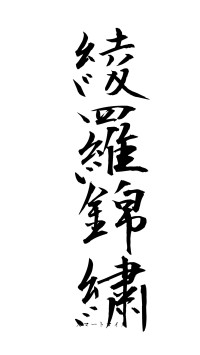 綾羅錦繍